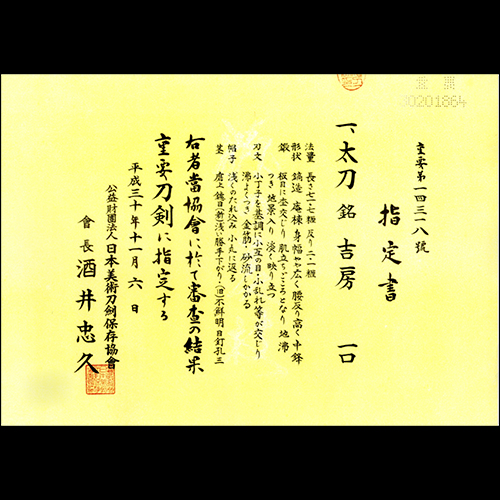 00201864
重要第一四三一八號
指定書
一、太刀 銘 吉房 一口
法量 長さ七一・七糎 反り二・一糎
形状 鎬造 庵棟 身幅やや広く 腰反り高く 中鋒
鍛 板目に杢交じり 肌立ちごころとなり 地沸
つき 地景入り 淡く映り立つ
刃文 小丁子を基調に小互の目・小乱れ等が交じり
沸よくつき 金筋・砂流しかかる
帽子 浅くのたれ込み 小丸に返る
茎 磨上 鑢目(新)浅い勝手下がり(旧)不鮮明 目釘孔三
右者當協會に於て審査の結果
重要刀剣に指定する
平成三十年十一月六日
公益財團法人日本美術刀剣保存協會
會長 酒井忠久